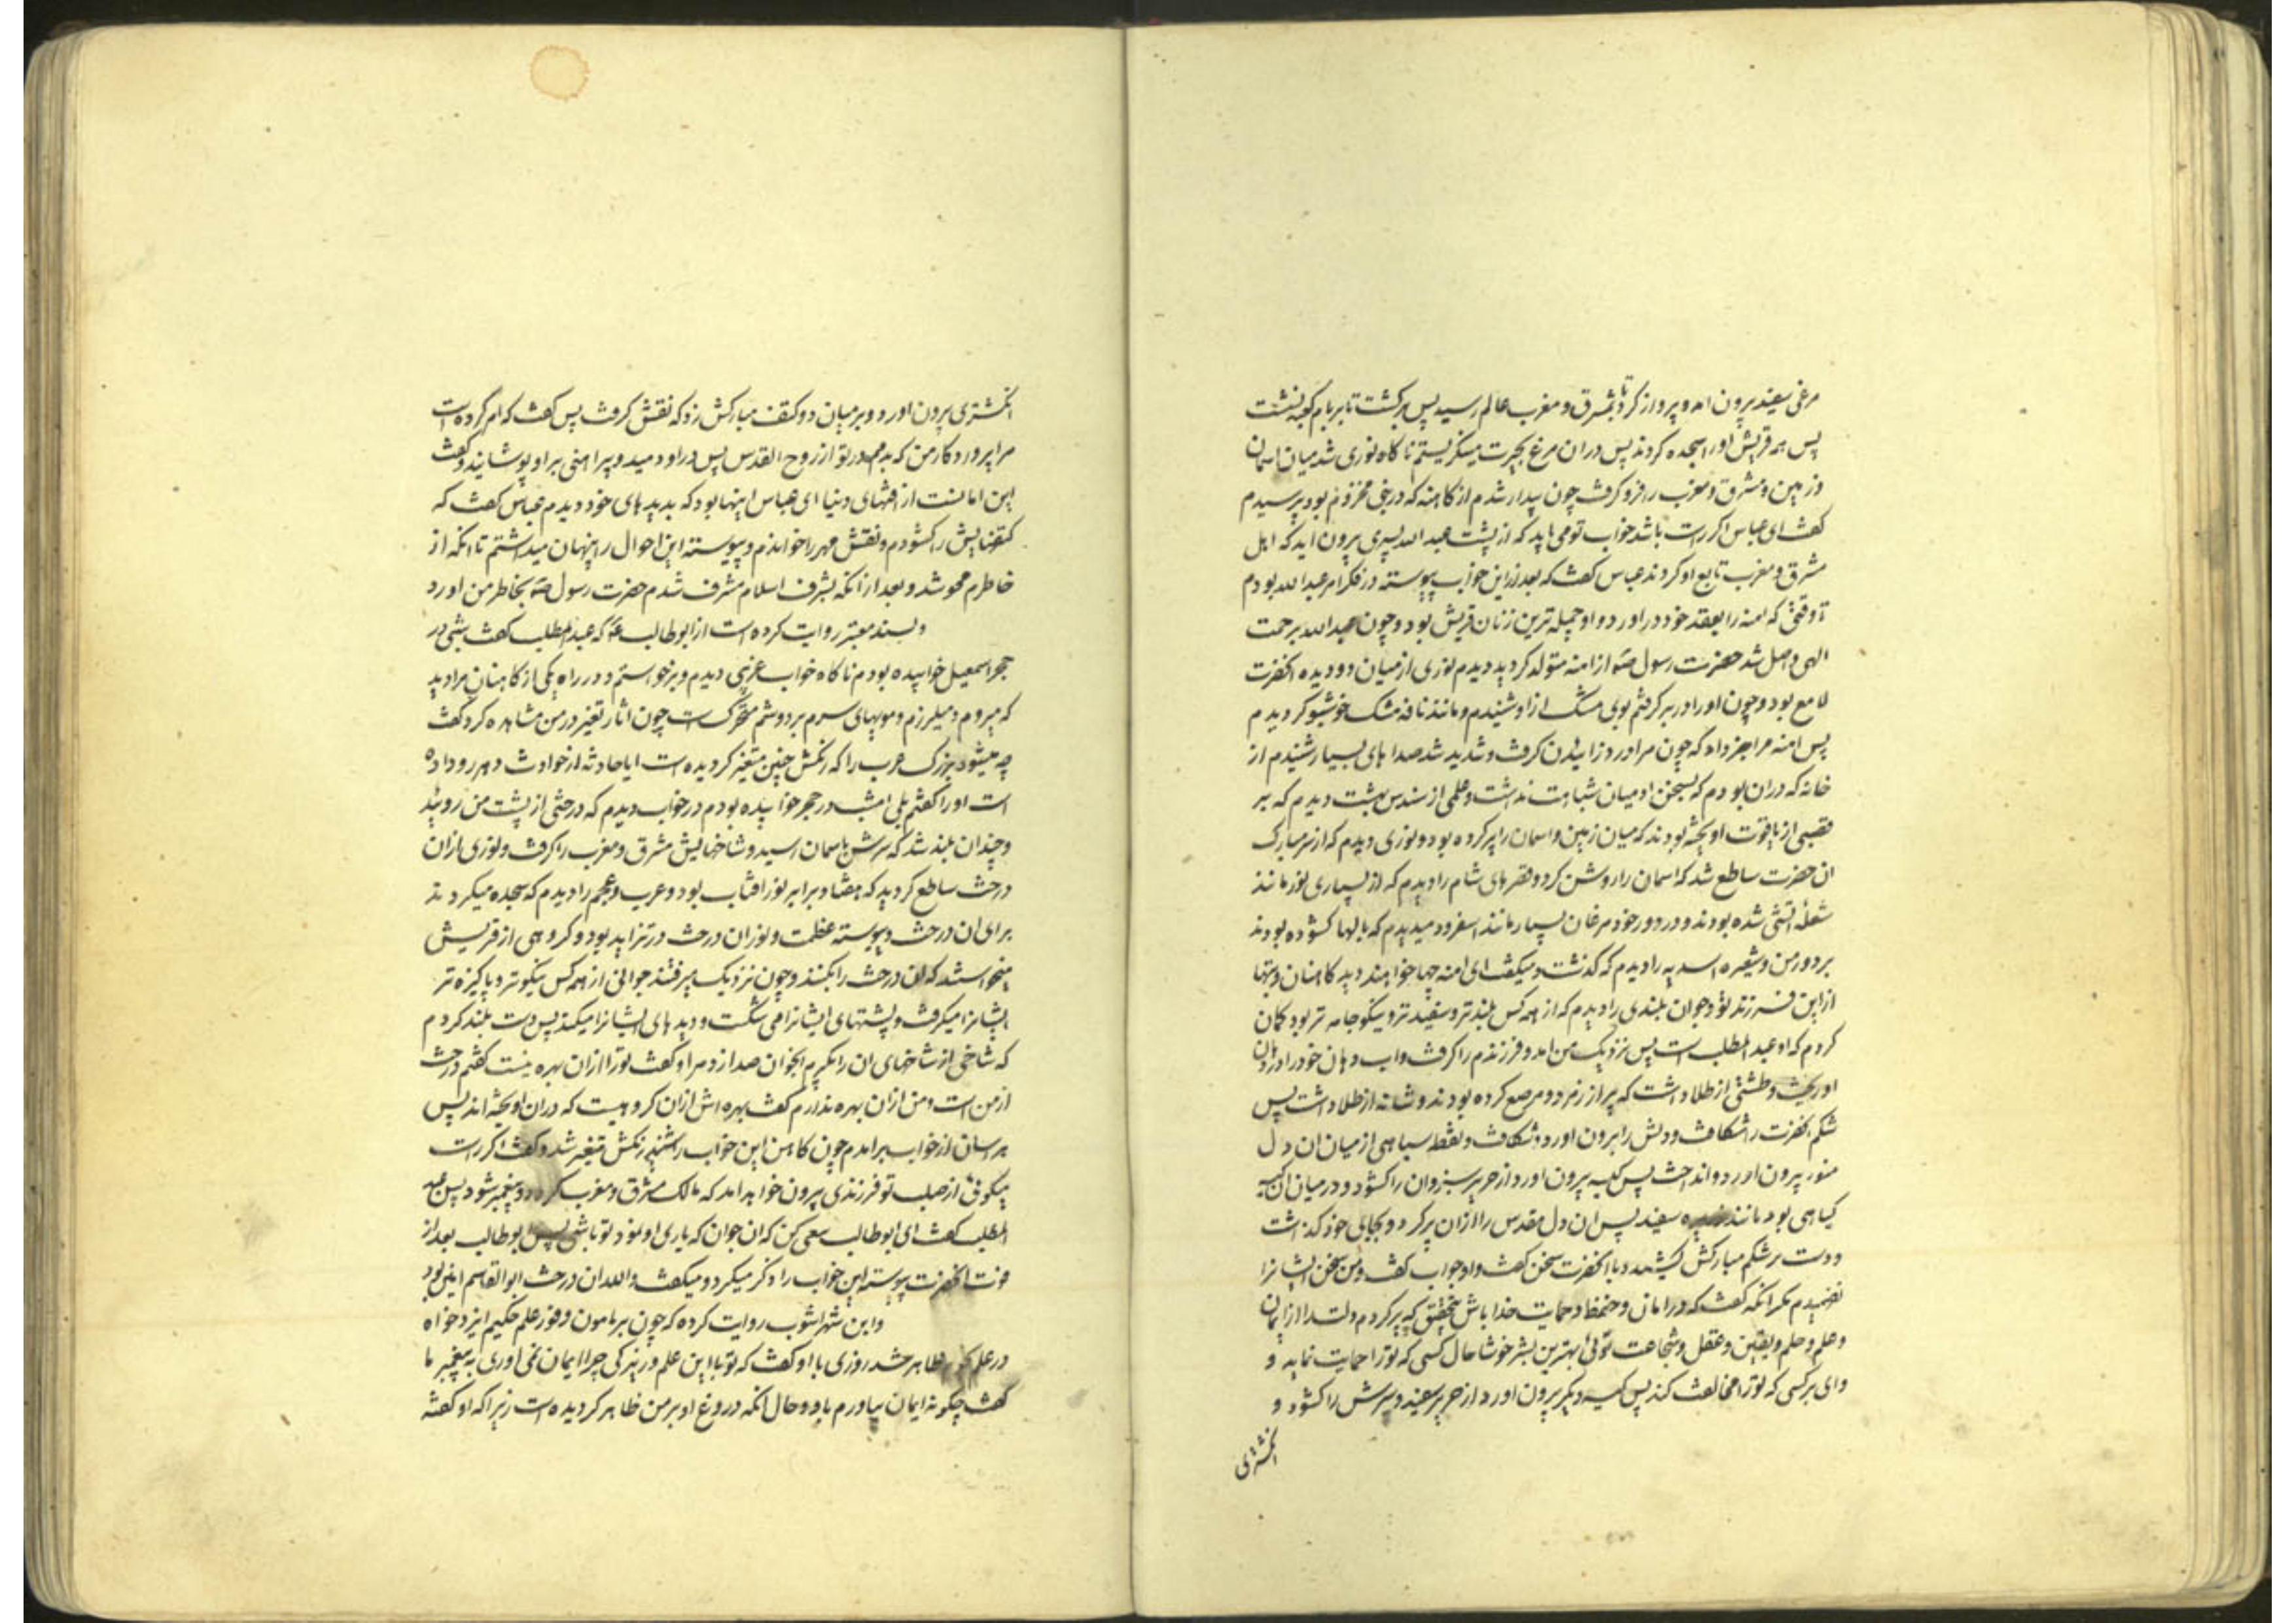 مرغی سفید بیرون امد و پرواز کرد تا بمشرق و مغرب عالم رسید پس برکشت تا بر بام کعبه نشست
پس همه قریش او را سجده کردند پس دران مرغ بحیرت میکریستم ناکاه نوری شد میان اسمان
و زمین و مشرق و مغرب را فرو کرفت چون بیدار شدم از کاهنه که در بنی مخزوم بود پرسیدم
کفت ای عباس اکر راست باشد خواب تو می باید که از پشت عبد الله پسری بیرون اید که اهل
مشرق و مغرب تابع او کردند عباس کفت که بعد ازین خواب پیوسته در فکر امر عبد الله بودم
تا وقتی که امنه را بعقد خود در اورد و او جمیله ترین زنان قریش بود و چون عبد الله برحمت
الهی واصل شد حضرت رسول ص از امنه متولد کردید دیدم نوری از میان دو دیده انحضرت
لامع بود و چون او را در بر کرفتم بوی مشک از او شنیدم و مانند نافه مشک خوشبو کردیدم
پس امنه مرا خبر داد که چون مرا درد زاییدن کرفت و شدید شد صداهای بسیار شنیدم از
خانه که دران بودم که بسخن ادمیان شباهت نداشت و علمی از سندس بهشت دیدم که بر
قصبی از یاقوت اویخته بودند که میان زمین و اسمان را پر کرده بود و نوری دیدم که از سر مبارک
ان حضرت ساطع شد که اسمان را روشن کرد و قصرهای شام را دیدم که از بسیاری نور مانند
شعله اتشی شده بودند و در دور خود مرغان بسیار مانند اسفرود میدیدم که بالها کشوده بودند
بر دور من و شعیره اسدیه را دیدم که کذشت و میکفت ای امنه چها خواهند دید کاهنان و بتها
از این فرزند تو و جوان بلندی را دیدم که از همه کس بلندتر و سفیدتر و نیکو جامه تر بود کمان
کردم که او عبد المطلب است پس نزدیک من امد و فرزندم را کرفت و اب دهان خود را در دهان
او ریخت و طشتی از طلا داشت که پر از زمرد و مرصع کرده بودند و شانه از طلا داشت پس
شکم انحضرت را شکافت و دلش را بیرون اورد و شکافت و نقطه سیاهی از میان ان دل
منور بیرون اورد و انداخت پس کیسه بیرون اورد از حریر سبز و ان را کشود و در میان ان کیسه
کیاهی بود مانند ذریره سفید پس ان دل مقدس را ازان پر کرد و بجای خود کذاشت
و دست بر شکم مبارکش کشید و با انحضرت سخن کفت و او جواب کفت و من سخن ایشانرا
نفهمیدم مکر انکه کفت که در امان و حفظ و حمایت خدا باش بتحقیق که پر کردم دلت را از ایمان
و علم و حلم و یقین و عقل و شجاعت تویی بهترین بشر خوشا حال کسی که تو را حمایت نماید و
وای بر کسی که تو را مخالفت کند پس کیسه دیکر بیرون اورد از حریر سفید و سرش را کشود و
انکشتری
انکشتری بیرون اورد و بر میان دو کتف مبارکش زد که نقش کرفت پس کفت که امر کرده است
مرا پروردکار من که بدمم در تو از روح القدس پس در او دمید و پیراهنی بر او پوشانید و کفت
این امانست از افتهای دنیا ای عباس اینها بود که بدیدهای خود دیدم عباس کفت که
کتفهایش را کشودم و نقش مهر را خواندم و پیوسته این احوال را پنهان میداشتم تا انکه از
خاطرم محو شد و بعد از انکه بشرف اسلام مشرف شدم حضرت رسول ص بخاطر من اورد
و بسند معتبر روایت کرده است از ابو طالب ع که عبد المطلب کفت شبی در
حجر اسمعیل خوابیده بودم ناکاه خواب غریبی دیدم و برخواستم و در راه یکی از کاهنان مرا دید
که میروم و میلرزم و مویهای سرم بر دوشم متحرک است چون اثار تغیر در من مشاهده کرد کفت
چه میشود بزرک عرب را که رنکش چنین متغیر کردیده است ایا حادثه از حوادث دهر رو داده
است او را کفتم بلی امشب در حجر خوابیده بودم در خواب دیدم که درختی از پشت من رویید
و چندان بلند شد که سرش باسمان رسید و شاخهایش مشرق و مغرب را کرفت و نوری ازان
درخت ساطع کردید که هفتاد برابر نور افتاب بود و عرب و عجم را دیدم که سجده میکردند
برای ان درخت و پیوسته عظمت و نور ان درخت در تزاید بود و کروهی از قریش
میخواستند که ان درخت را بکنند و چون نزدیک میرفتند جوانی از همه کس نیکوتر و پاکیزه تر
ایشانرا میکرفت و پشتهای ایشانرا می شکست و دیدهای ایشانرا میکند پس دست بلند کردم
که شاخی از شاخهای ان را بکیرم انجوان صدا زد مرا و کفت تو را ازان بهره نیست کفتم درخت
از من است و من ازان بهره ندارم کفت بهره اش ازان کروهیست که دران اویخته اند پس
هراسان از خواب برامدم چون کاهن این خواب را شنید رنکش متغیر شد و کفت اکر راست
میکوئی از صلب تو فرزندی بیرون خواهد امد که مالک مشرق و مغرب کردد و پیغمبر شود پس عبد
المطلب کفت ای ابو طالب سعی کن که ان جوان که یاری او نمود تو باشی پس ابو طالب بعد از
فوت انحضرت پیوسته این خواب را ذکر میکرد و میکفت والله ان درخت ابو القاسم امین بود
و ابن شهراشوب روایت کرده که چون بر مامون وفور علم حکیم ایزدخواه
در علم ظاهر شد روزی با او کفت که تو با این علم و زیرکی چرا ایمان نمی اوری به پیغمبر ما
کفت چکونه ایمان بیاورم باو و حال انکه دروغ او بر من ظاهر کردیده است زیرا که او کفته